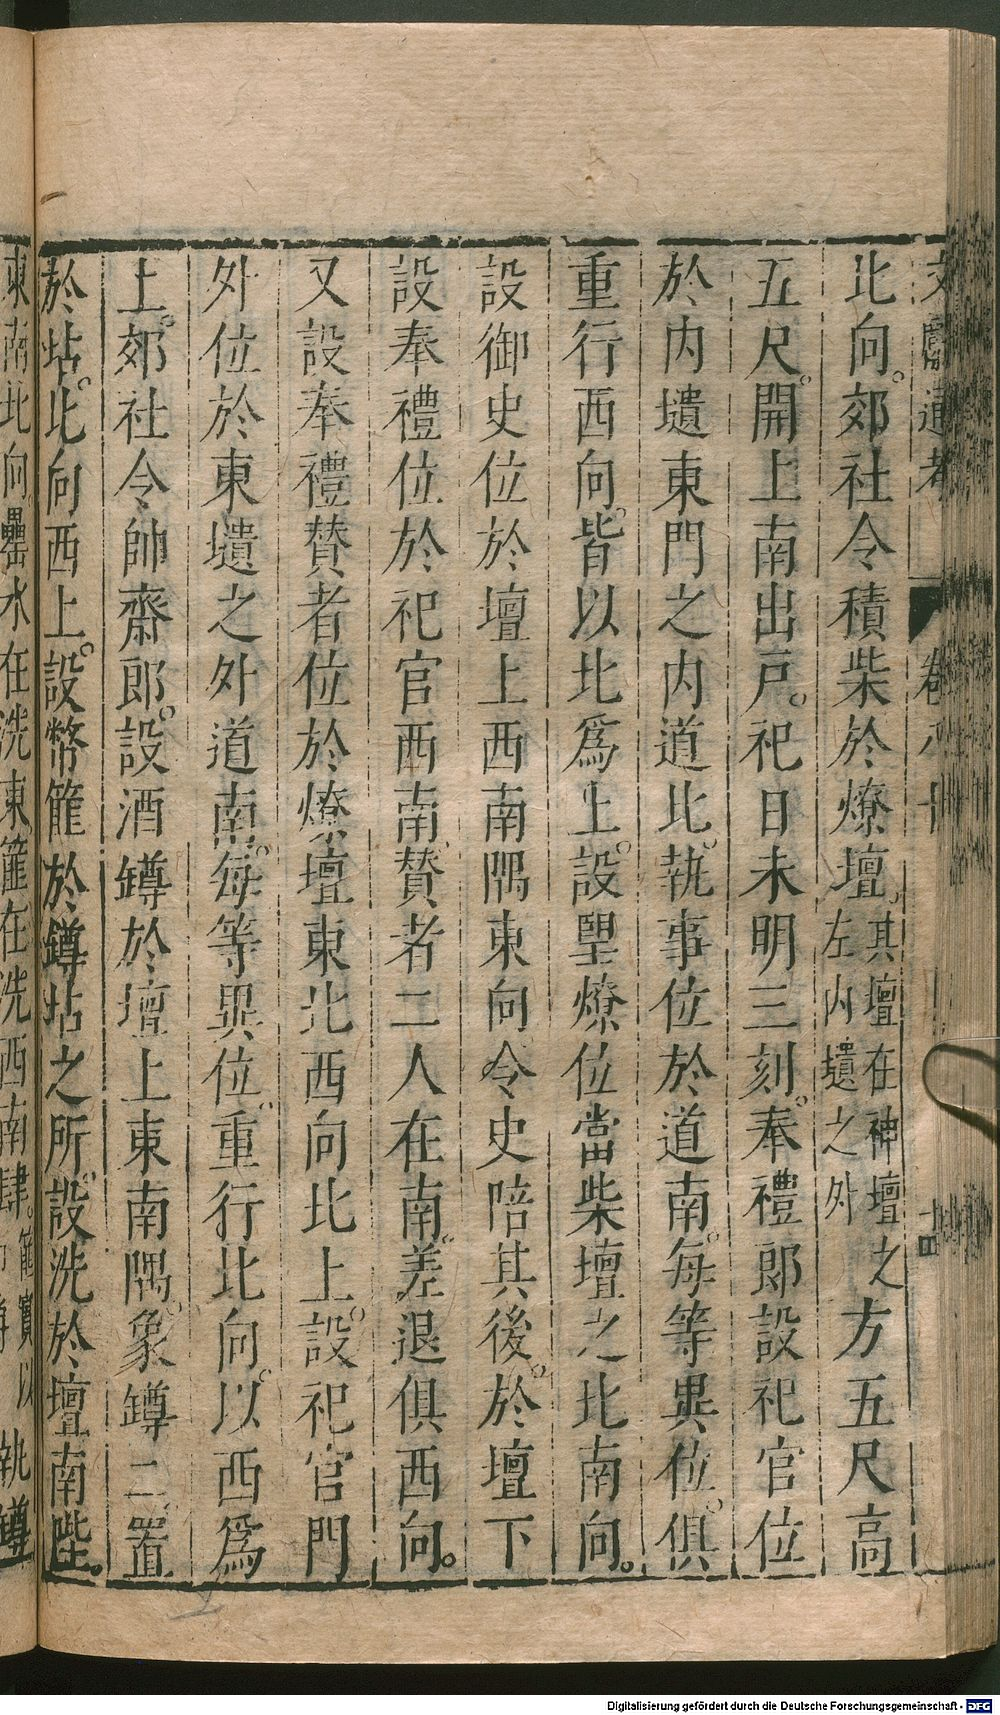 文獻通考 卷八十 十四
北向。郊社令積柴於燎壇。其壇在神壇之左内壝之外方五尺高
五尺。開上南出戸。祀日未明三刻。奉禮郎設祀官位
於内壝東門之内道北。執事位於道南。每等異位。俱
重行西向。皆以北爲上。設望燎位當柴壇之北南向。
設御史位於壇上西南隅東向令史陪其後。於壇下
設奉禮位於祀官西南。贊者二人在南。差退俱西向。
又設奉禮贊者位於燎壇東北西向北上。設祀官門
外位於東壝之外道南。每等異位。重行北向。以西爲
上。郊社令帥齋郎。設酒罇於壇上東南隅。象罇二。置
於坫。北向西上。設幣篚於罇坫之所。設洗於壇南陛。
東南北向。罍水在洗東篚在洗西南肆。篚實以 執罇
Digitalisierung gefördert durch die Deutsche Forschungsgemeinschaft - DFG